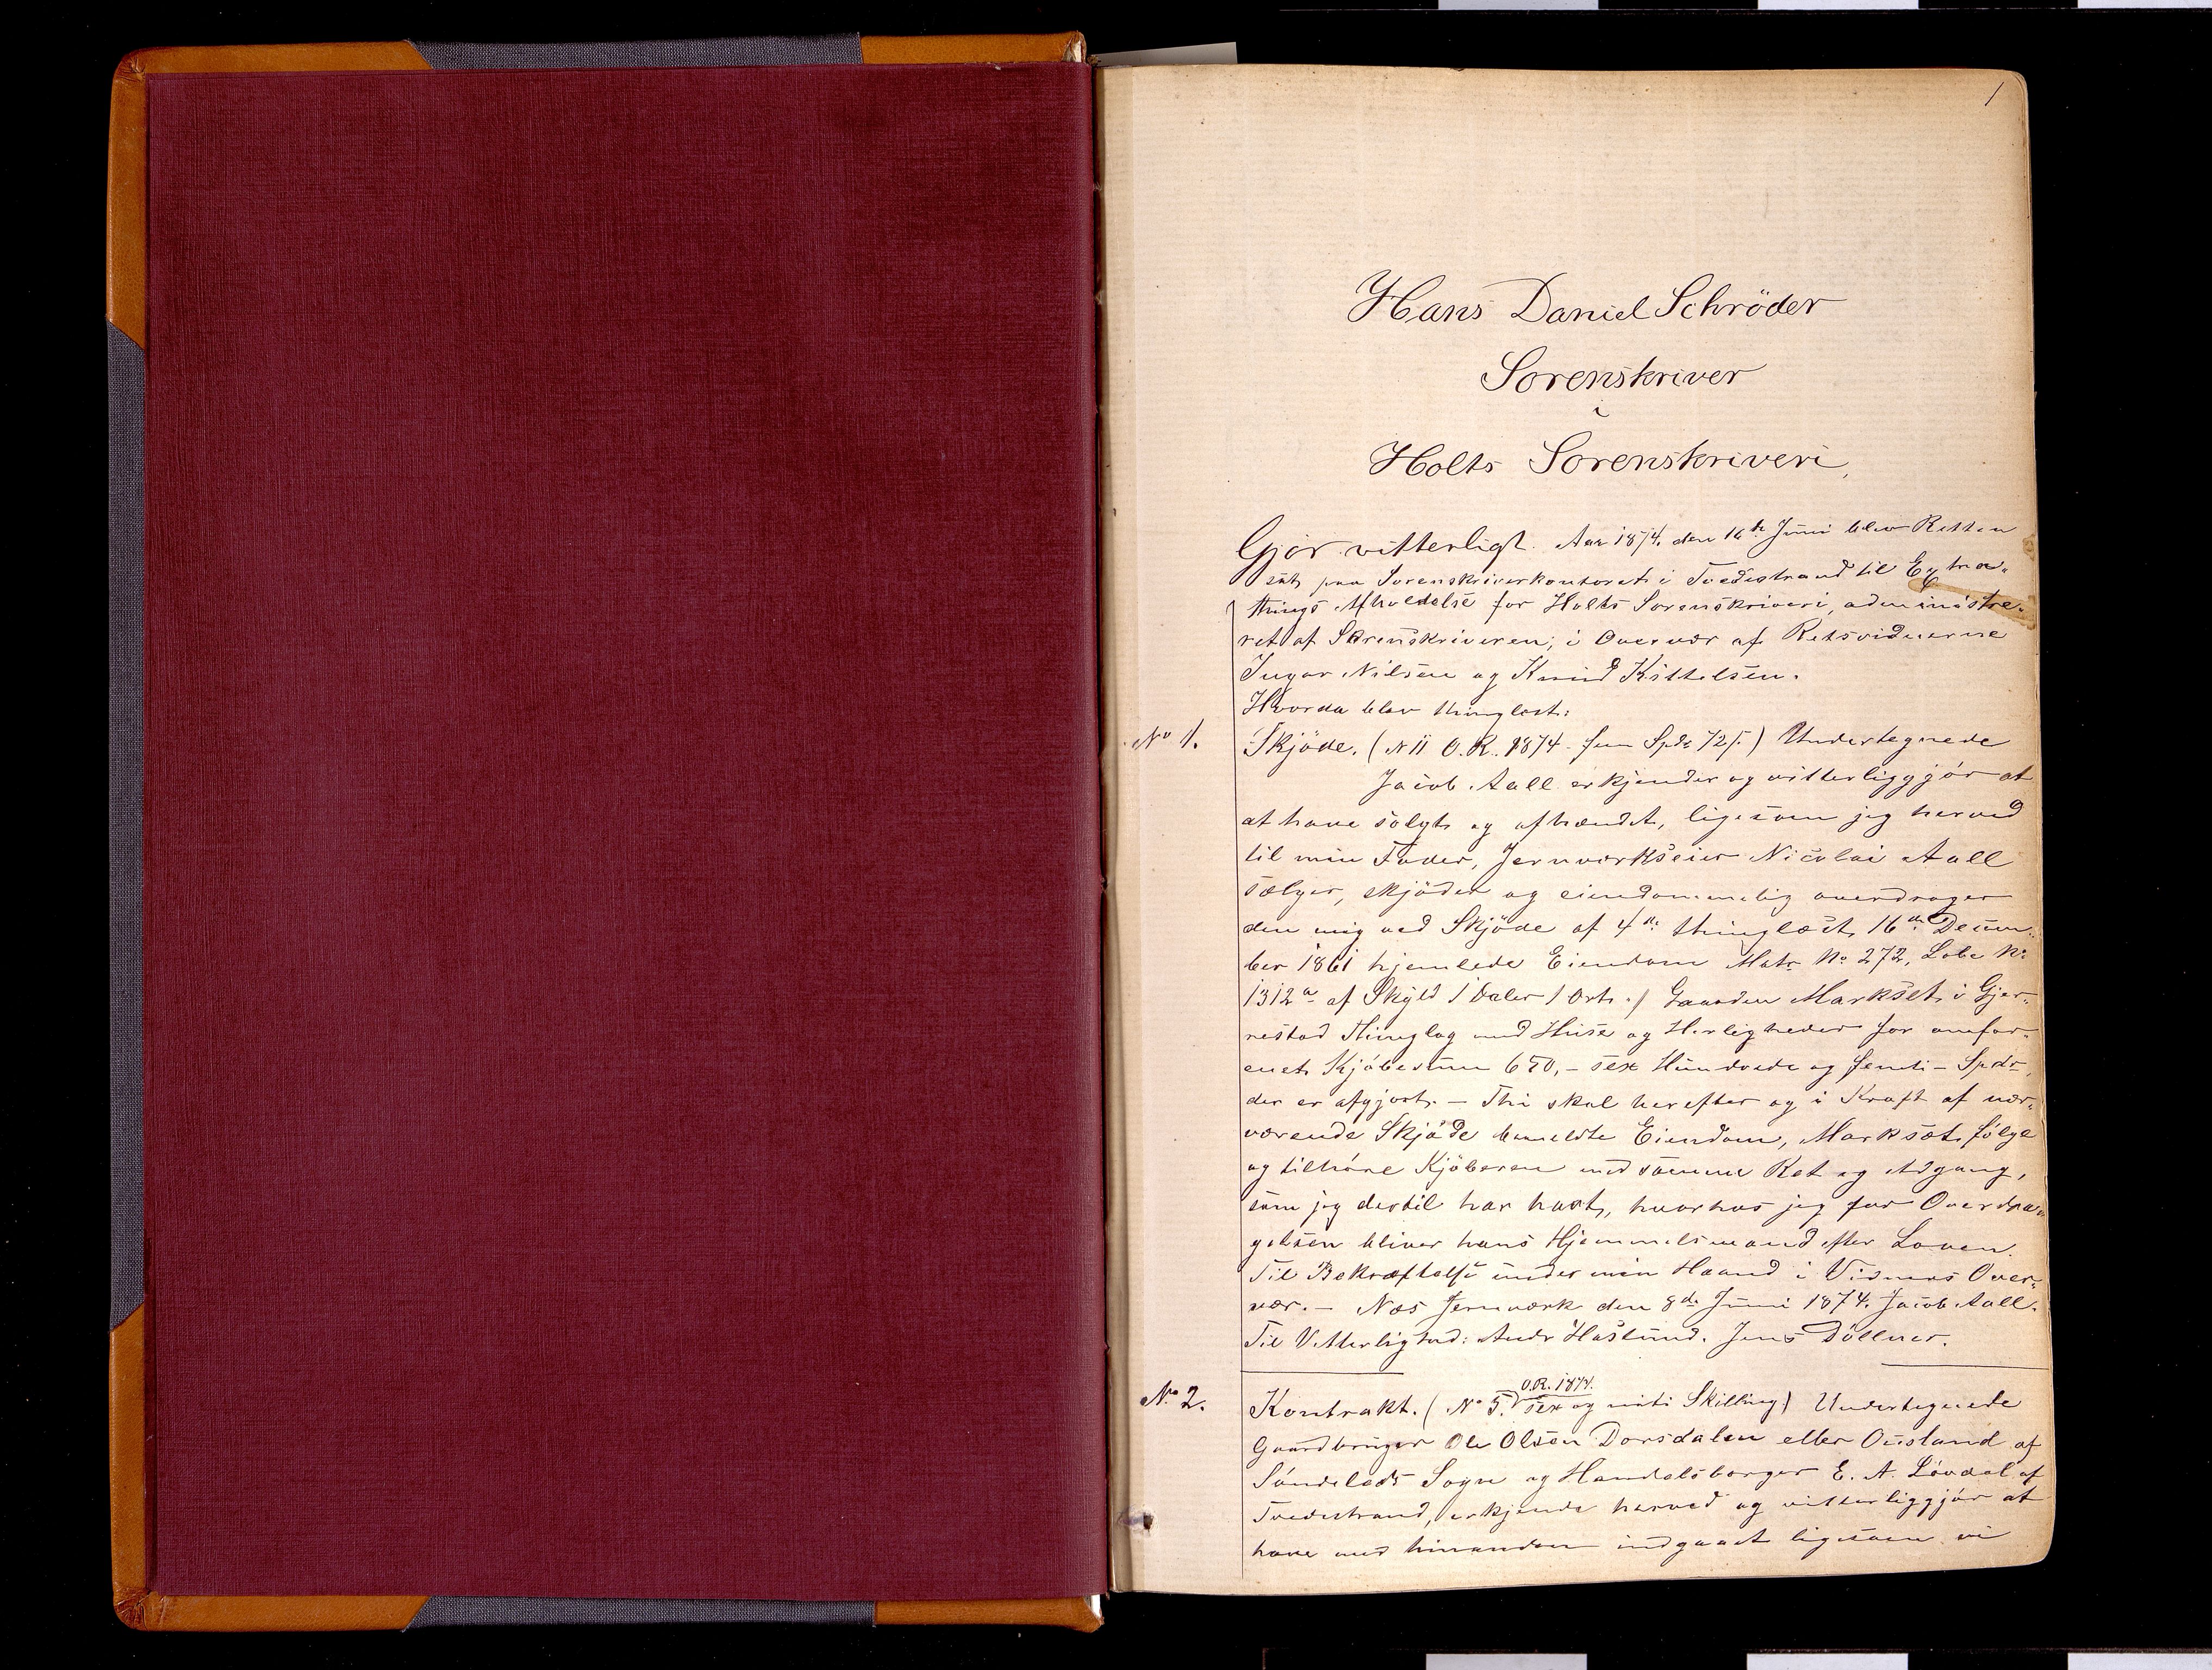 1
Hans Daniel Schröder
Sorenskriver
i
Holts Sorenskriveri,
Gjör vitterligt. Aar 1874. den 16de Juni blev Retten
sat paa Sorenskriverkontoret i Tvedestrand til Extra-
things Afholdelse for Holts Sorenskriveri, administre-
ret af Sorenskriveren, i Overvær af Retsvidnerne
Ingvar Nilsen og Knud Kittelsen.
Hvorda blev thinglæst:
No 1. Skjöde. (N 11 O.R. 1874 - fem Spdr 72 s.) Undertegnede
Jacob Aall erkjender og vitterliggjör at
at have solgt og afhændet, ligesom jeg herved
til min Fader, Jernværkseier Nicolai Aall
sælger, skjöder og eiendommelig overdrager
den mig ved Skjöde af 4de thinglæst 16de Decem-
ber 1861 hjemlede Eiendom Matr No 272, Löbe No
1312a af Skyld 1 Daler 1 Ort Gaarden Markset i Gjer-
restad Thinglag med Huse og Herligheder for omfor-
enet Kjöbesum 650,- sex Hundrede og femti - Spdr,
der er afgjort. - Thi skal herefter og i Kraft af nær-
værende Skjöde bemeldte Eiendom, Marksæt følge
og tilhöre Kjöberen med samme Ret og Adgang,
som jeg dertil har havt, hvorhos jeg for Overdra-
gelsen bliver hans Hjemmelsmand efter Loven.
Til Bekræftelse under min Haand i Vidners Over-
vær. - Næs Jernværk den 8de Juni 1874. Jacob Aall.
Til Vitterlighed: Andr Haslund. Jens Döllner.
No 2. Kontrakt. (No 5. O.R. 1874. sex og niti Skilling) Undertegnede
Gaardbruger Ole Olsen Dorsdalen eller Ousland af
Söndeleds Sogn og Handelsborger E. A. Lövdal af
Tvedestrand, erkjende herved og vitterliggjör at
have med hinanden indgaaet ligesom vi